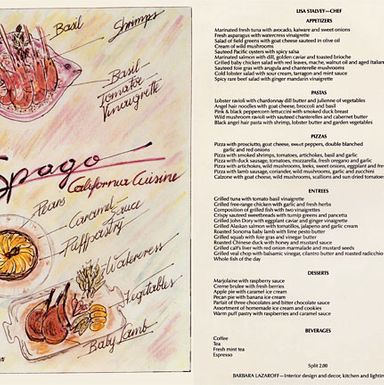 Basil
Shrimps
Basil-
Tomatoe
Vineaugrette
Spago
California Cuisine
Pears
Caramel
sauce
Puffpastry
Watercress
Vegetables
Baby Lamb
LISA STALVEY—CHEF
APPETIZERS
Marinated fresh tuna with avocado, kaiware and sweet onions
Fresh asparagus with watercress vinaigrette
Salad of field greens with goat cheese sauteed in olive oil
Cream of wild mushrooms
Sauteed Pacific oysters with spicy salsa
Marinated salmon with dill, golden caviar and toasted brioche
Grilled baby chicken salad with red leaves, mache, walnut oil and aged Italian
Sauteed foie gras with arugula and chanterelle mushrooms
Cold lobster salad with sour cream, tarragon and mint sauce
Spicy rare beef salad with ginger mandarin vinaigrette
PASTAS
Lobster ravioli with chardonnay dill butter and julienne of vegetables
Angel hair noodles with goat cheese, broccoli and basil
Pink & black peppercorn fettuccini with smoked duck breast
Wild mushroom ravioli with sauteed chanterelles and cabernet butter
Black angel hair pasta with shrimp, lobster butter and garden vegetables
PIZZAS
Pizza with prosciutto, goat cheese, sweet peppers, double blanched
garlic and red onions
Pizza with smoked shrimps, tomatoes, artichokes, basil and garlic
Pizza with duck sausage, tomatoes, mozzarella, fresh oregano and garlic
Pizza with artichokes, wild mushrooms, leeks, sweet onions, eggplant and fresh
Pizza with lamb sausage, coriander, wild mushrooms, garlic and zucchini
Calzone with goat cheese, wild mushrooms, scallions and sun dried tomatoes
ENTREES
Grilled tuna with tomato basil vinaigrette
Grilled free-range chicken with garlic and fresh herbs
Composition of grilled fish with two vinaigrettes
Crispy sauteed sweetbreads with turnip greens and pancetta
Grilled John Dory with eggplant caviar and ginger vinaigrette
Grilled Alaskan salmon with tomatillos, jalapeno and garlic cream
Roasted Sonoma baby lamb with lime pesto butter
Grilled squab with foie gras and vinegar butter
Roasted Chinese duck with honey and mustard sauce
Grilled calf's liver with onion marmalade and mustard seeds
Grilled veal chop with balsamic vinegar, cilantro butter and roasted radicchio
Whole fish of the day
DESSERTS
Marjolaine with raspberry sauce
Creme brulee with fresh berries
Apple pie with caramel ice cream
Pecan pie with banana ice cream
Partial of three chocolates and bitter chocolate sauce
Assortment of homemade ice cream and cookies
Warm puff pastry with raspberry and caramel sauce
BEVERAGES
Coffee
Tea
Fresh mint tea
Espresso
Split 2.00
BARBARA LAZAROFF—Interior design and decor, kitchen and lighting